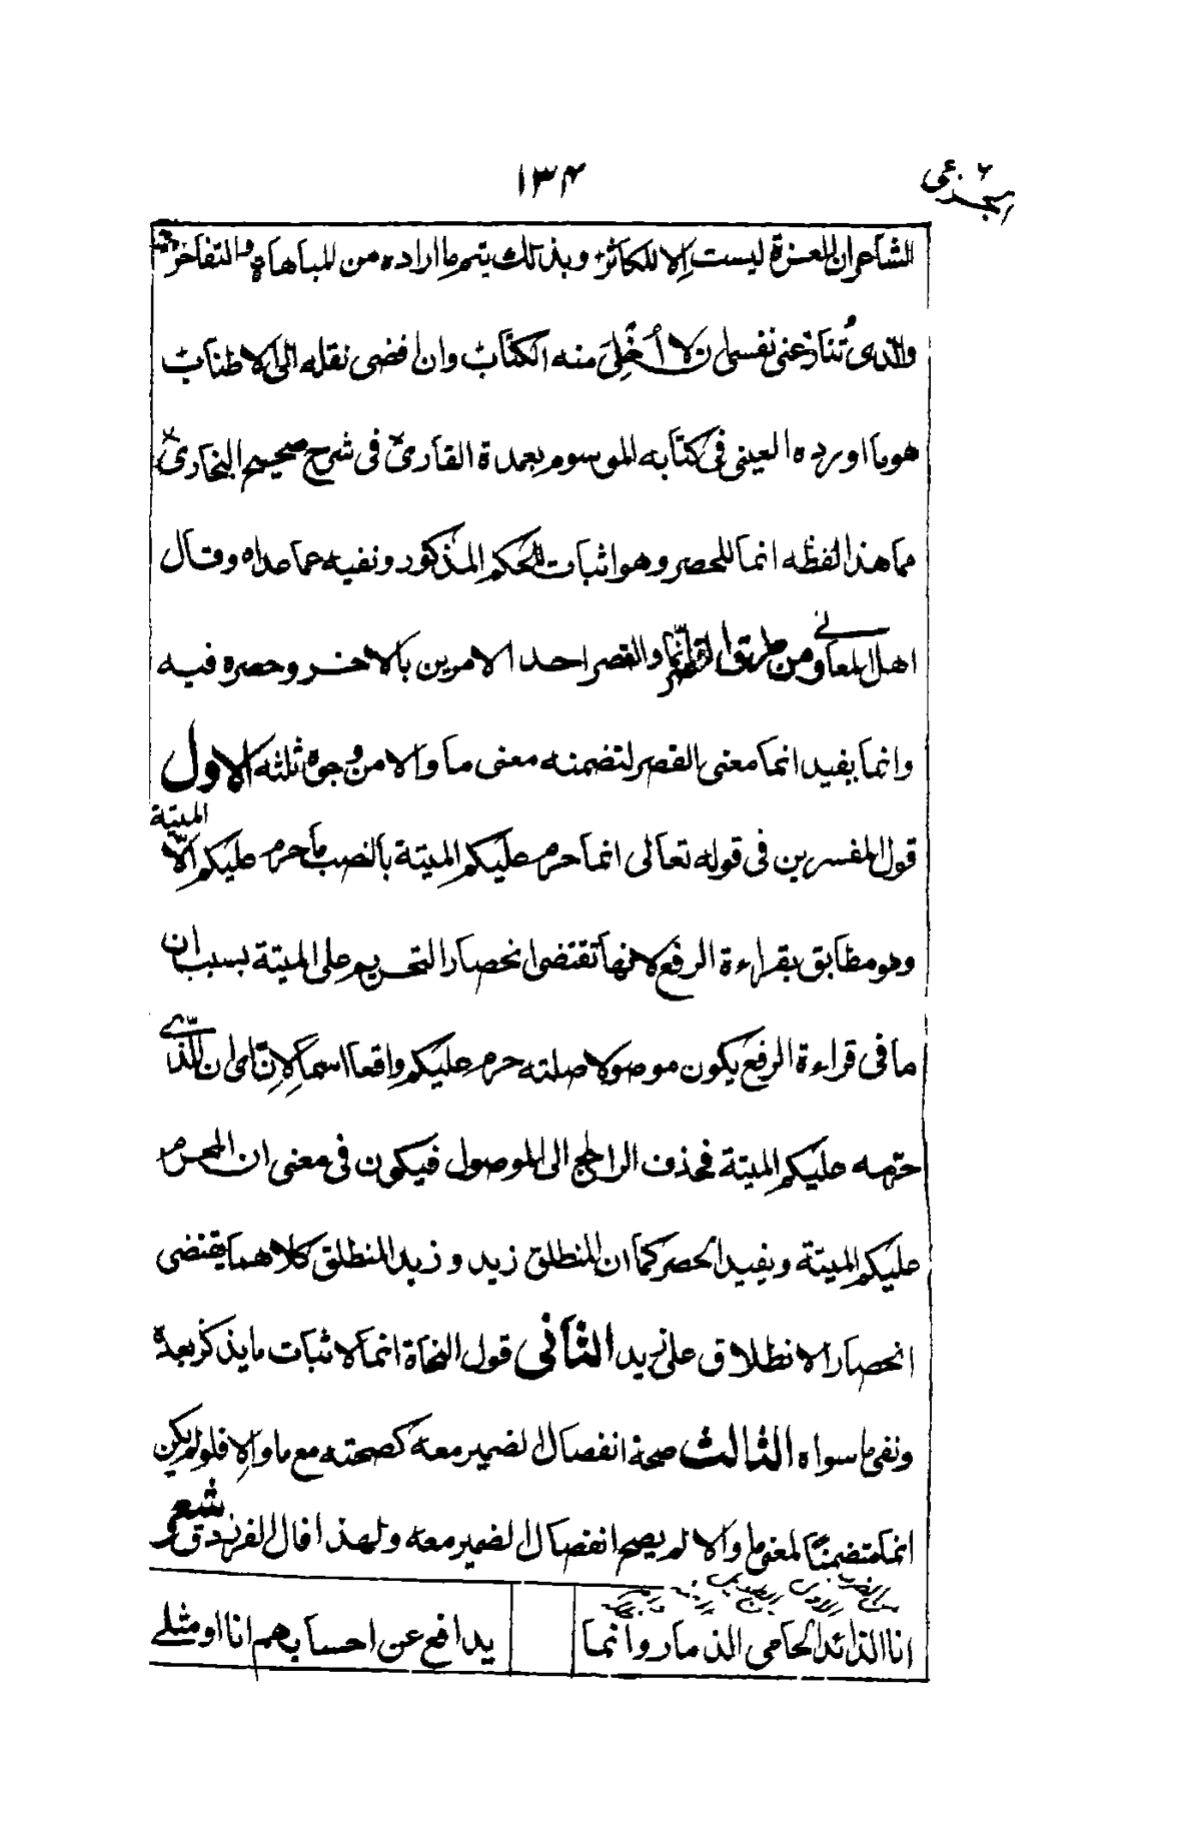 ١٣٤
الشاعر ان العزة ليست الا للكاثر وبذلك يتم ما اراده من المباهاة والتفاخر
والذى تنازعنى نفسى ان لا أخلى منه الكتاب وان افضى نقله الى الاطناب
هو ما اورده العينى فى كتابه الموسوم بعمدة القارى فى شرح صحيح البخارى
مما هذا لفظه انما للحصر وهو اثبات الحكم المذكور ونفيه عما عداه وقال
اهل المعانے ومن طريق القصر انّما والقصر احد الامرين بالاخر وحصره فيه
وانما يفيد انما معنى القصر لتضمنه معنى ما والا من وجوه ثلثه الاول
قول المفسرين فى قوله تعالى انما حرم عليكم الميتة بالنصب ما حرم عليكم الّا الميتة
وهو مطابق بقراءة الرفع لانها تقتضى انحصار التحريم على الميتة بسبب ان
ما فى قراءة الرفع يكون موصولا صلته حرم عليكم واقعا اسما لانّ اى ان الّذے
حرّمه عليكم الميتة فحذف الراجع الى الموصول فيكون فى معنى ان المحرم
عليكم الميتة ويفيد الحصر كما ان المنطلق زيد و زيد المنطلق كلاهما يقتضى
انحصار الانطلاق على زيد الثانى قول النحاة انما لاثبات ما يذكر بعده
ونفى ما سواه الثالث صحة انفصال الضمير معه كصحته مع ما والا فلو لم يكن
انما متضمنًا لمعنى ما والا لم يصح انفصال الضمير معه ولهذا قال الفرزدق شعر
انا الذائد الحامى الذمار وانما يدافع عن احسابهم انا او مثلے